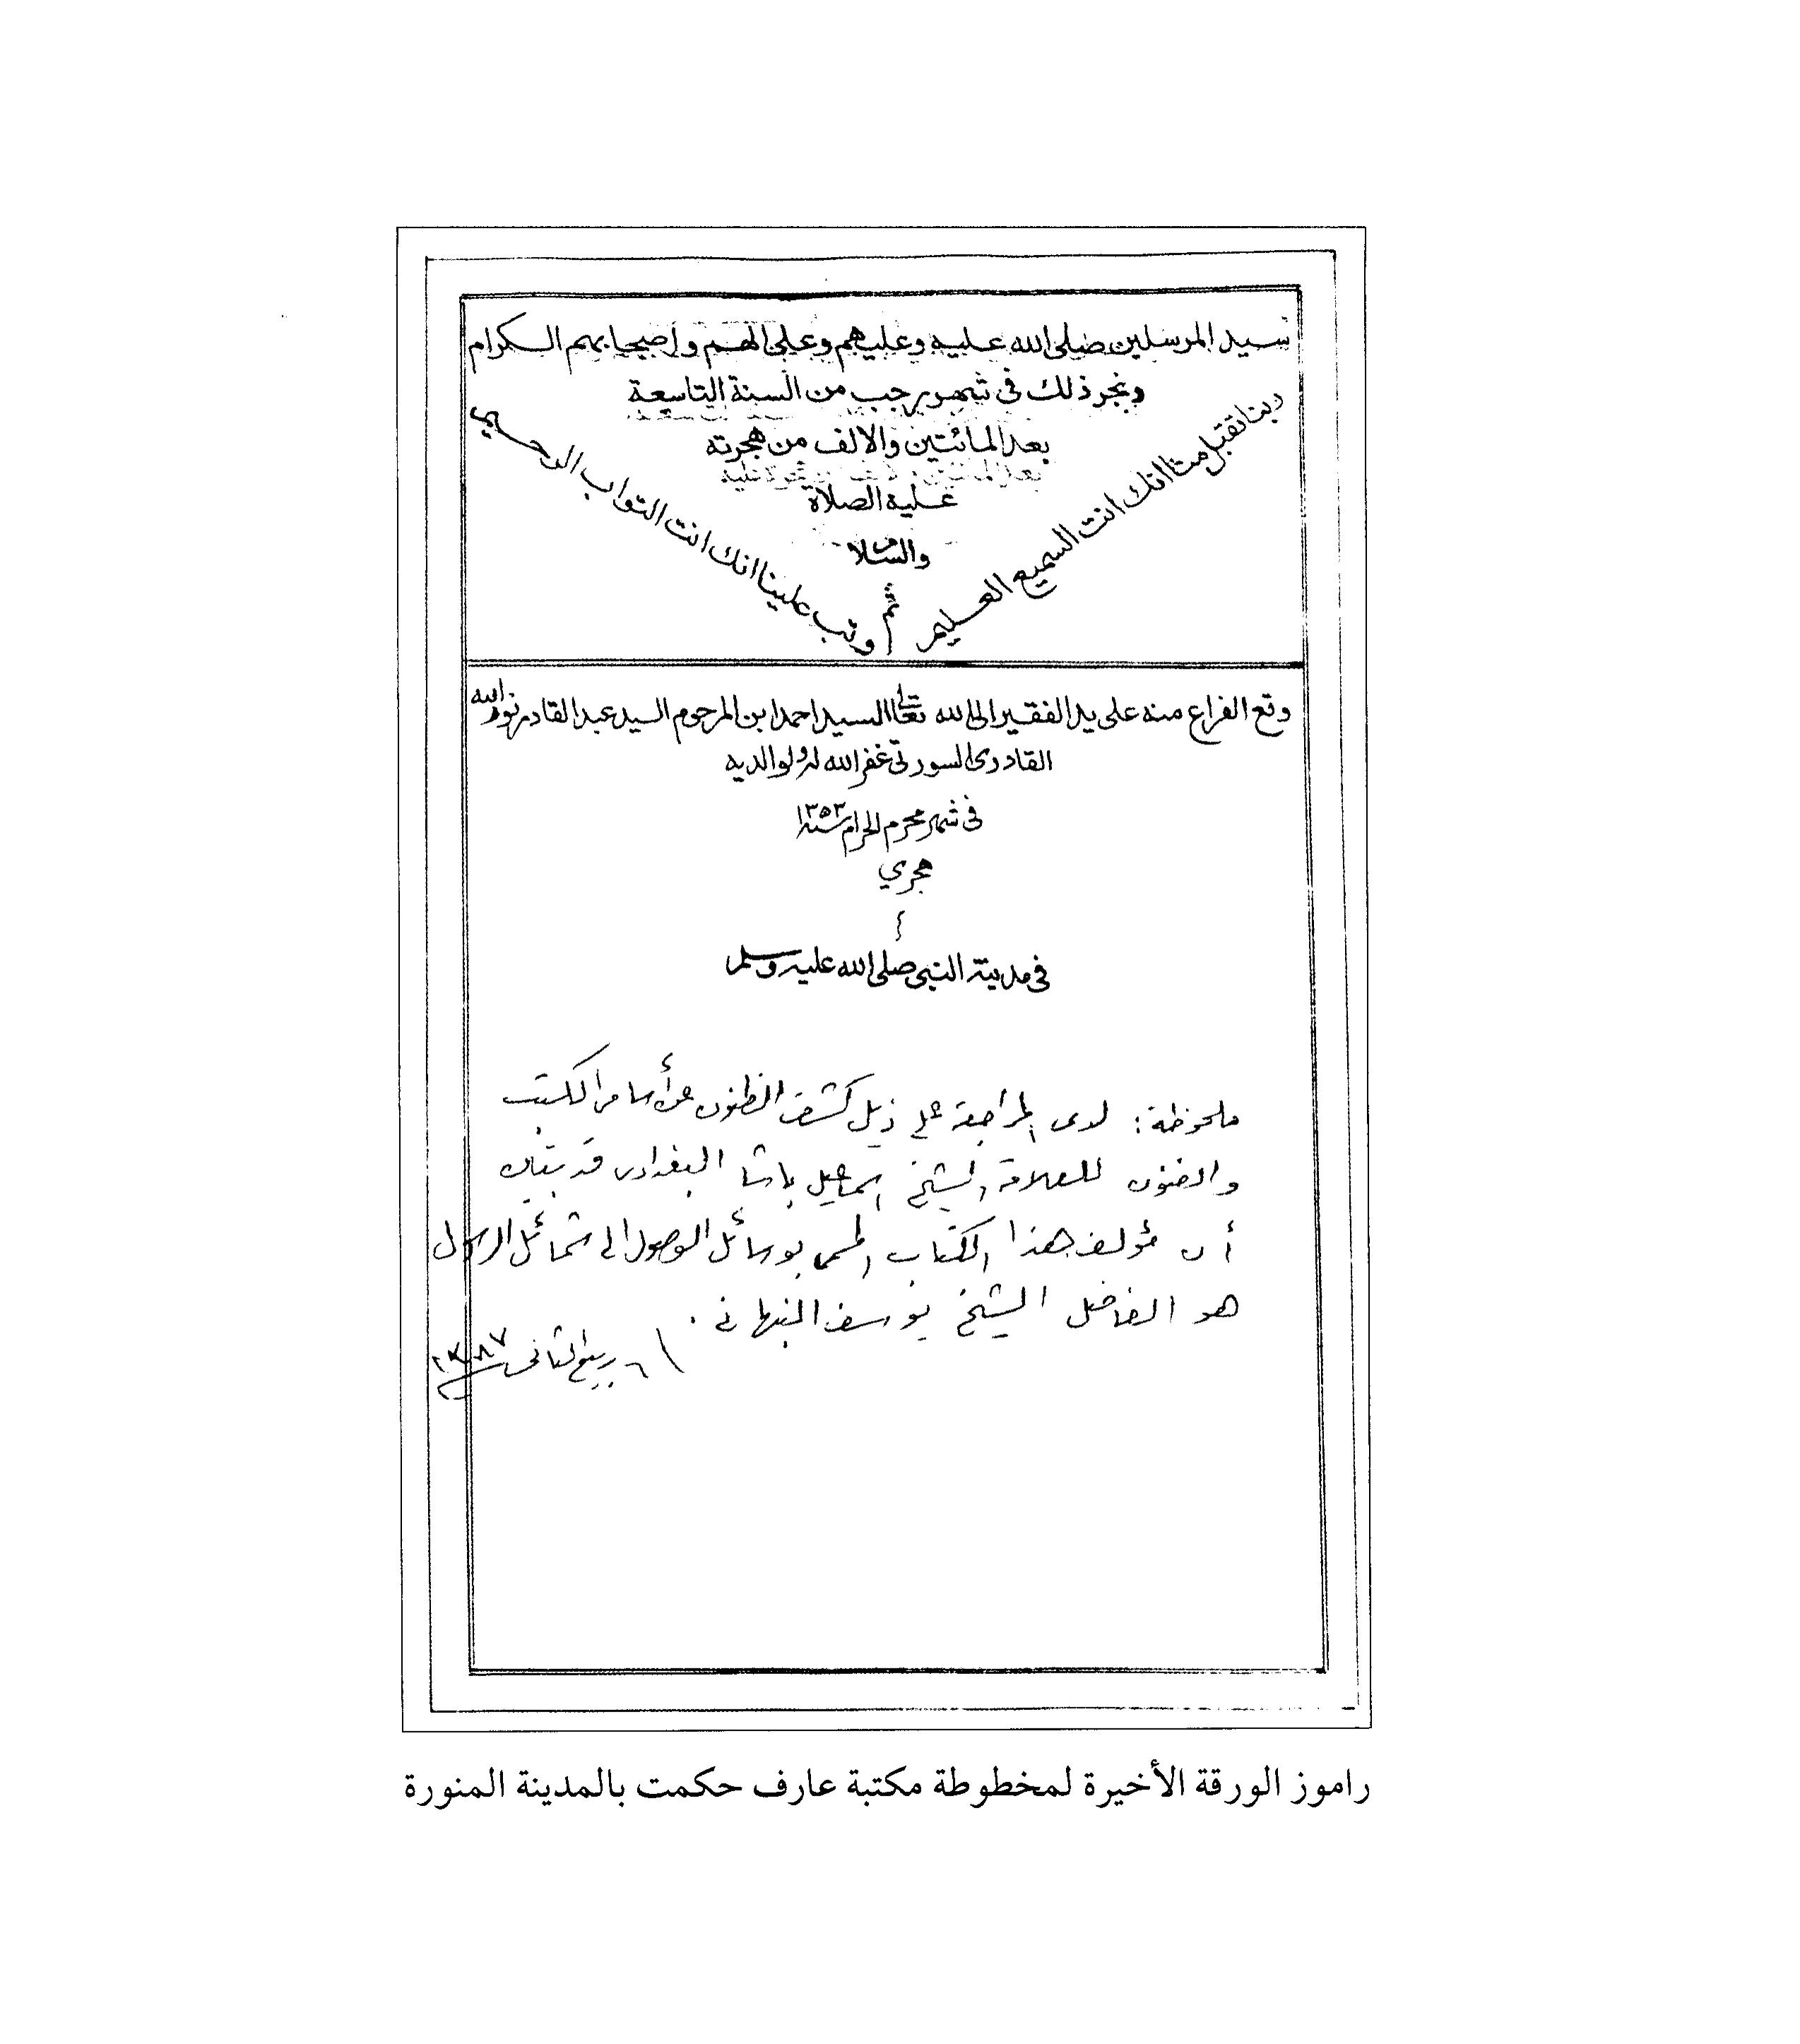 سيد المرسلين صلى الله عليه وعليهم وعلى الهم واصحابهم الكرام
ونجز ذلك فى شهر رجب من السنة التاسعة
بعد المائتين والالف من هجرته
عليه الصلاة
والسلام
تم
ربنا تقبل منا انك انت السميع العليم
وتب علينا انك انت التواب الرحيم
وقع الفراغ منه على يد الفقير الى الله تعالى السيد احمد ابن المرحوم السيد عبد القادر نور الله
القادرى السورتى غفر الله له ولوالديه
فى شهر محرم الحرام سنة ١٣٥٣
هجري
فى مدينة النبى صلى الله عليه وسلم
ملحوظة: لدى المراجعة على ذيل كشف الظنون عن أسامى الكتب
والفنون للعلامة الشيخ اسماعيل باشا البغدادى قد تبين
أن مؤلف هذا الكتاب المسمى بوسائل الوصول الى شمائل الرسول
هو الفاضل الشيخ يوسف النبهانى .
ربيع الثانى
راموز الورقة الأخيرة لمخطوطة مكتبة عارف حكمت بالمدينة المنورة